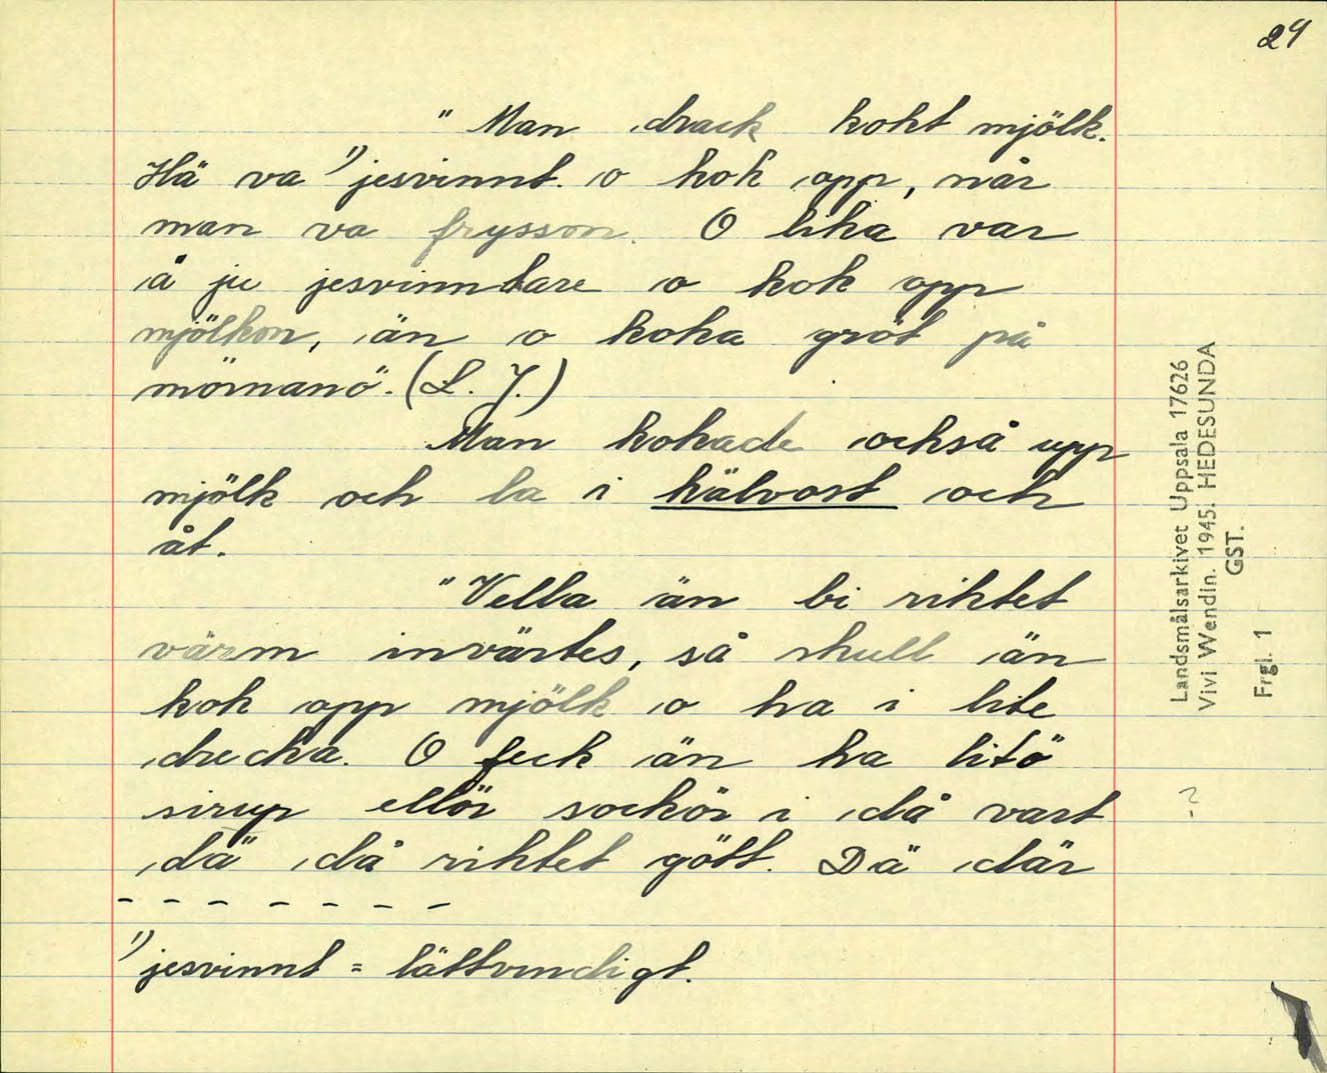 29
" Man drack kokt mjölk.
Hä va 1) jesvinnt o kok opp, når
man va frysson. O lika var
ä ju jesvinntare o kok opp
mjölkon, än o koka gröt på
mörnanö". (L. J.)
Man kokade också upp
mjölk och la i kälvost och
åt.
"Vella än bi riktet
värm invärtes, så skull än
kok opp mjölk o ha i lite
dricka. O feck än ha litö
sirup ellör sockör i då vart
dä då riktet gött. Dä där
- - - - - - - -
1) jesvinnt = lättvindigt.
Landsmålsarkivet Uppsala 17626
Vivi Wendin. 1945. HEDESUNDA
GST.
Frgl. 1
?